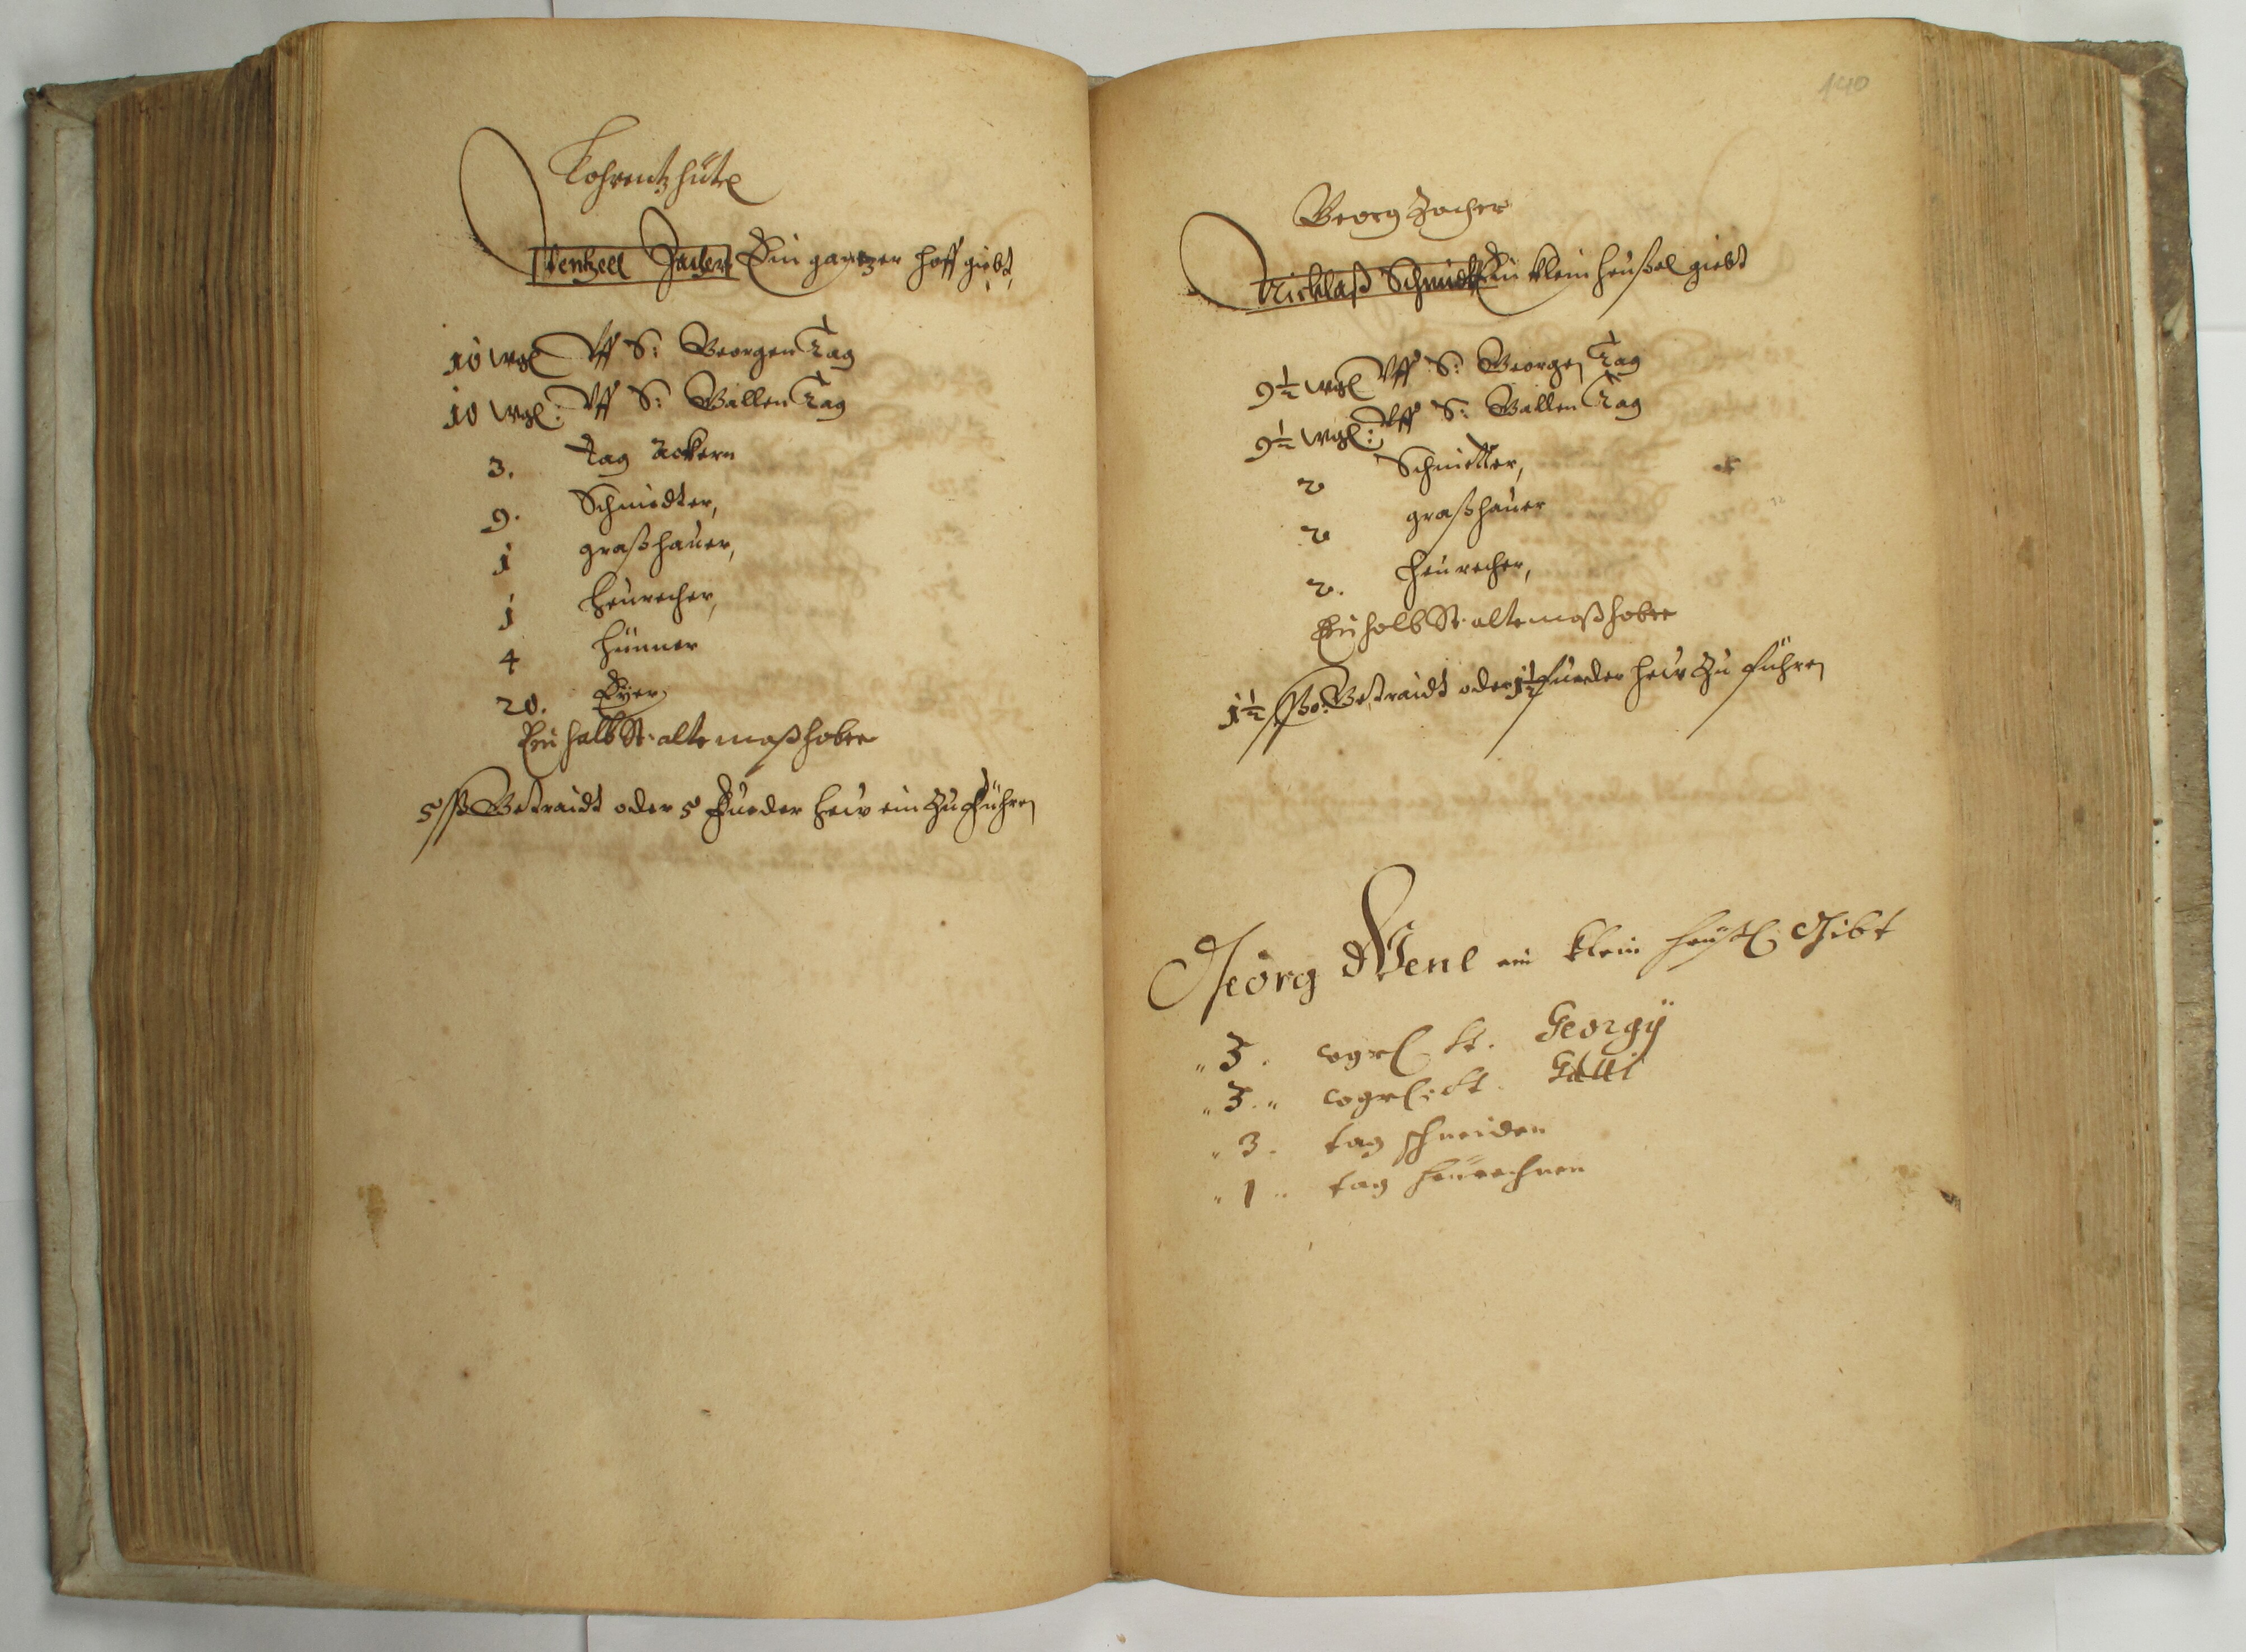 Lohrentz hütl
Wentzel Zacher Ein gantzer hoff giebt,
10 wgl Vff S: Georgen Tag
10 wgl: Vff S: Gallen Tag
3. tag Ackern
9. Schnidter,
1 graßhauer,
1 heurecher,
4 hünner
20. Eÿer
Ein halb St: alte maß haber
5 ßo Getraidt oder 5 Fueder heiw ein Zu führen
140
Georg Zacher
Nicklaß Schmidt Ein klein heußel giebt
9½ wgl Vff S: Georgen Tag
9½ wgl: Vff S: Gallen Tag
2 Schnitter,
2 graßhauer
2. heu recher,
Ein halb St: alte maß haber
1½ ßo: Getraidt oder 1½ fueder heiw Zu führen
Georg Wenl ein klein heußl Gibt
3. wgrl St. Georgÿ
3. wgrl: St. Galli
3. tag schneiden
1 tag heurechnen